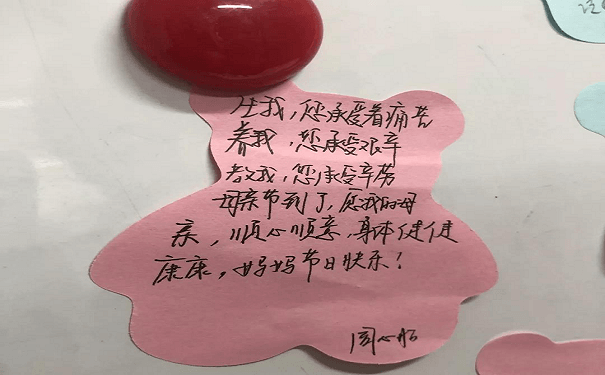 生我，您承受着痛苦
养我，您承受艰辛
教我，您承受辛劳
母亲节到了，愿我的母
亲，顺心顺意，身体健健
康康，妈妈节日快乐！